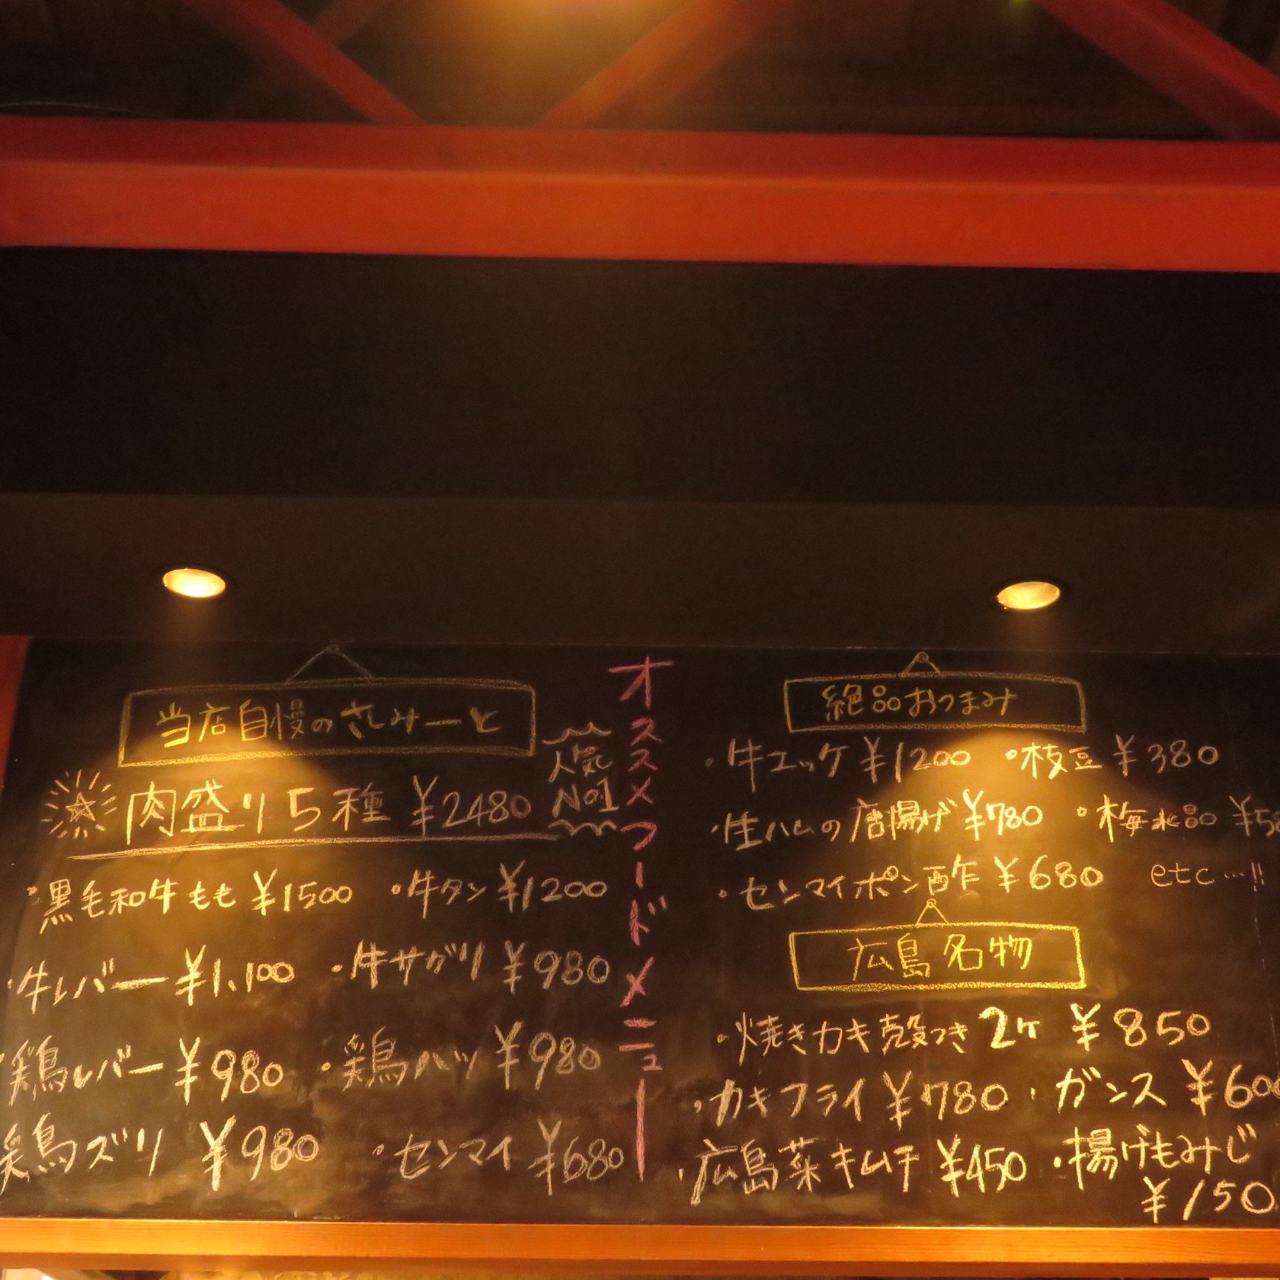 オススメフードメニュー
当店自慢のさしみーと
人気
No1
肉盛り5種 ¥2480
・黒毛和牛もも ¥1500 ・牛タン ¥1200
・牛レバー ¥1,100 ・牛サガリ ¥980
鶏レバー ¥980 ・鶏ハツ ¥980
鶏ズリ ¥980 ・センマイ ¥680
絶品おつまみ
・牛ユッケ ¥1200 ・枝豆 ¥380
・生ハムの唐揚げ ¥780 ・梅水晶
・センマイポン酢 ¥680 etc…!!
広島名物
・焼きカキ殻つき 2ケ ¥850
・カキフライ ¥780 ・ガンス ¥600
・広島菜キムチ ¥450 ・揚げもみじ
¥150